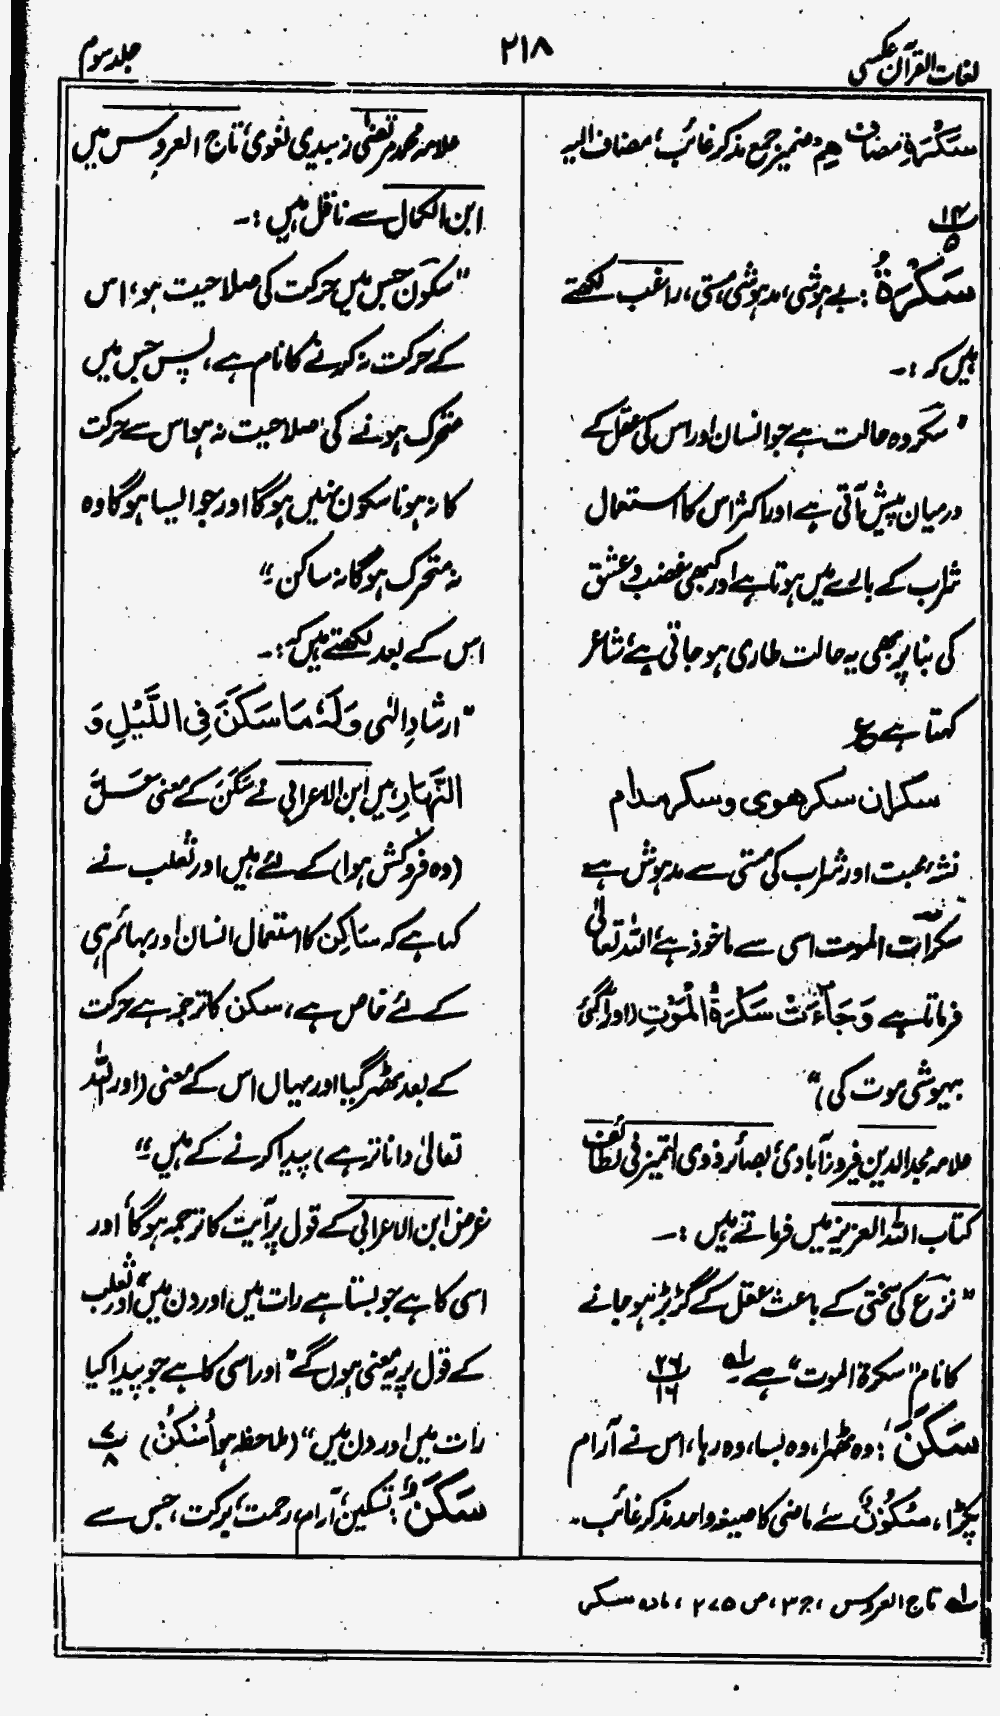 لغات القرآن عکسی
۲۱۸
جلد سوم
سَکْرَۃِ مضاف ھِمْ ضمیر جمع مذکر غائب، مضاف الیہ
۱۴
۵
سَکْرَۃُ : بے ہوشی، مدہوشی، مستی، راغب لکھتے
ہیں کہ :۔
"سکر وہ حالت ہے جو انسان اور اس کی عقل کے
درمیان پیش آتی ہے اور اکثر اس کا استعمال
شراب کے بارے میں ہوتا ہے اور کبھی غضب و عشق
کی بنا پر بھی یہ حالت طاری ہو جاتی ہے، شاعر
کہتا ہے ع
سکران سکر ھوی و سکر مدام
نشۂ محبت اور شراب کی مستی سے مدہوش ہے
سکرات الموت اسی سے ماخوذ ہے، اللہ تعالیٰ
فرماتا ہے وَجَآءَتْ سَکْرَۃُ الْمَوْتِ (اور آگئی
بیہوشی موت کی)"
علامہ مجدالدین فیروزآبادی، بصائر ذوی التمییز فی لطائف
کتاب اللہ العزیز میں فرماتے ہیں :۔
"نزع کی سختی کے باعث عقل کے گڑبڑ ہو جانے
کا نام "سکرۃ الموت" ہے لہ ۲۶
۱۶
سَکَنَ : وہ ٹھہرا، وہ بسا، وہ رہا، اس نے آرام
پکڑا، سُکُوْنٌ سے ماضی کا صیغہ واحد مذکر غائب۔
علامہ محمد مرتضیٰ زبیدی لغوی، تاج العروس میں
ابن الکمال سے ناقل ہیں :۔
"سکون جس میں حرکت کی صلاحیت ہو، اس
کے حرکت نہ کرنے کا نام ہے، پس جس میں
متحرک ہونے کی صلاحیت نہ ہو اس سے حرکت
کا نہ ہونا سکون نہیں ہوگا اور جو ایسا ہوگا وہ
نہ متحرک ہوگا نہ ساکن"
اس کے بعد لکھتے ہیں کہ :۔
"ارشادِ الٰہی وَلَہٗ مَا سَکَنَ فِی اللَّیْلِ وَ
النَّہَارِ، میں ابن الاعرابی نے سَکَنَ کے معنی حَلَّ
(وہ فروکش ہوا) کے لئے ہیں اور ثعلب نے
کہا ہے کہ سَاکِن کا استعمال انسان اور بہائم ہی
کے لئے خاص ہے، سکن کا ترجمہ ہے حرکت
کے بعد ٹھہر گیا اور یہاں اس کے معنی (اور اللہ
تعالیٰ دانا تر ہے) پیدا کرنے کے ہیں"
غرض ابن الاعرابی کے قول پر آیت کا ترجمہ ہوگا، اور
اسی کا ہے جو بستا ہے رات میں اور دن میں" اور ثعلب
کے قول پر یہ معنی ہوں گے" اور اسی کا ہے جو پیدا کیا
رات میں اور دن میں" (ملاحظہ ہو اُسْکُنْ) ۷
۸
سَکَنٌ : تسکین، آرام، رحمت، برکت، جس سے
لہ تاج العروس، ج ۳، ص ۲۷۵، مادہ سکر